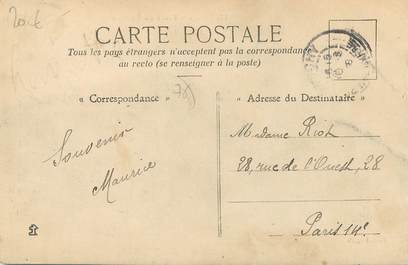 CARTE POSTALE
Tous les pays étrangers n'acceptent pas la correspondance
au recto (se renseigner à la poste)
« Correspondance »
« Adresse du Destinataire »
78
Souvenir
Maurice
Madame Rioh
28, rue de l'Ouest, 28
Paris 14e